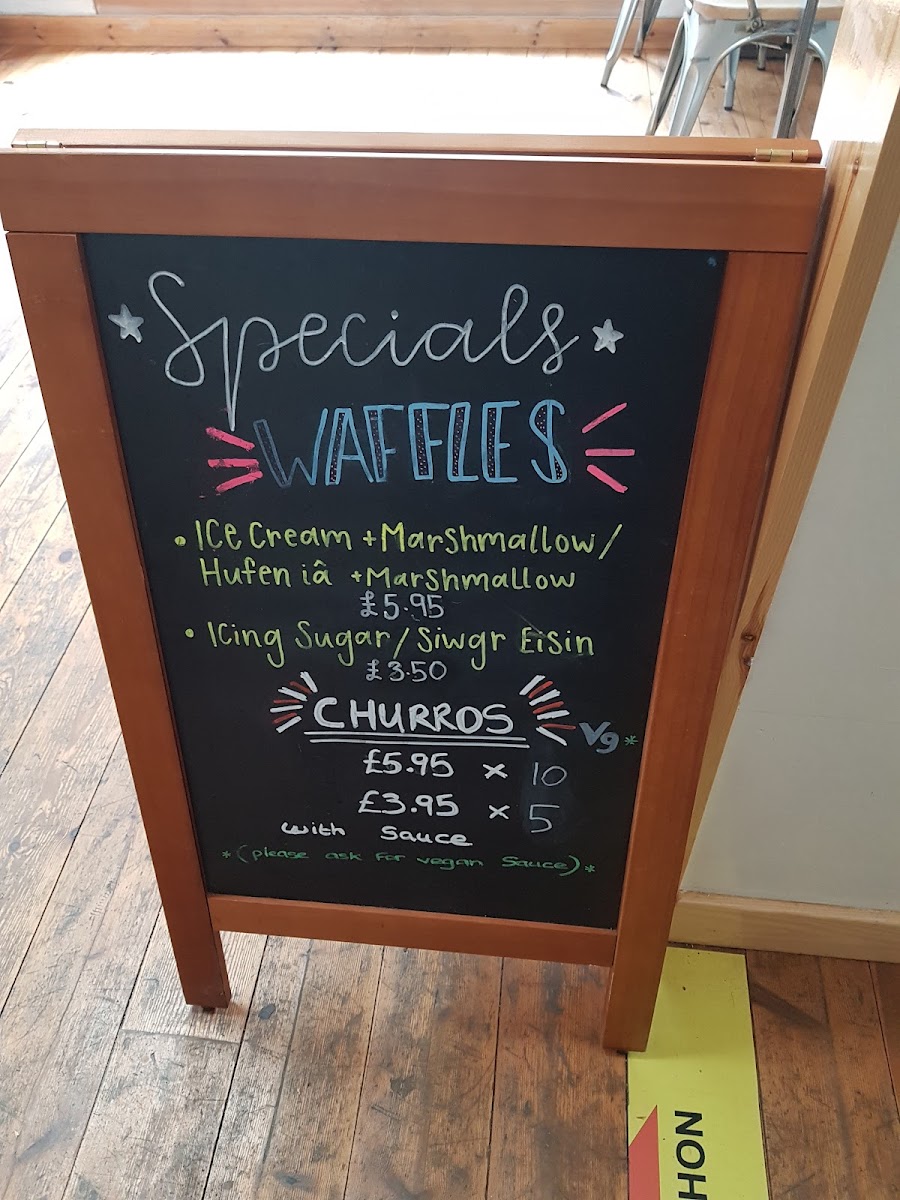 Specials
WAFFLES
• Ice Cream + Marshmallow /
Hufen iâ + Marshmallow
£5.95
• Icing Sugar / Siwgr Eisin
£3.50
CHURROS Vg*
£5.95 × 10
£3.95 × 5
with Sauce
*(please ask for vegan Sauce)*
HON